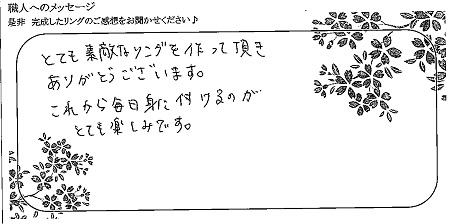 職人へのメッセージ
是非 完成したリングのご感想をお聞かせください♪
とても素敵なリングを作って頂き
ありがとうございます。
これから毎日身に付けるのが
とても楽しみです。